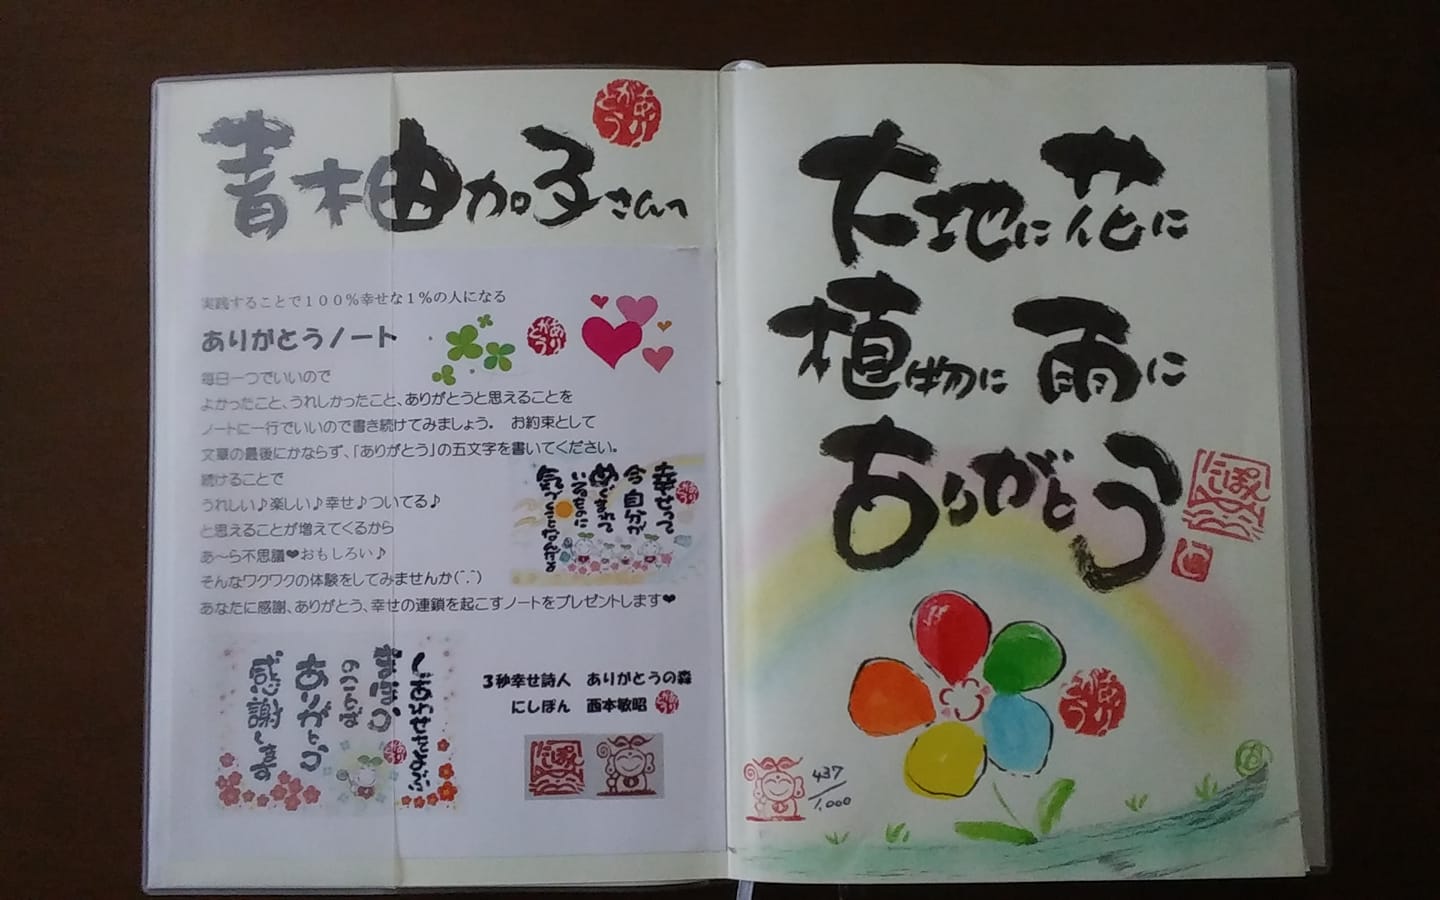 青柚加子さんへ
ありがとう
実践することで１００％幸せな１％の人になる
ありがとうノート
ありがとう
毎日一つでいいので
よかったこと、うれしかったこと、ありがとうと思えることを
ノートに一行でいいので書き続けてみましょう。 お約束として
文章の最後にかならず、「ありがとう」の五文字を書いてください。
続けることで
うれしい♪楽しい♪幸せ♪ついてる♪
と思えることが増えてくるから
あ～ら不思議❤おもしろい♪
そんなワクワクの体験をしてみませんか(^.^)
あなたに感謝、ありがとう、幸せの連鎖を起こすノートをプレゼントします❤
幸せって
今自分が
めぐまれて
いるなかに
気づくことなんだよ
しあわせをよぶ
まほうの
ことば
ありがとう
感謝します
３秒幸せ詩人 ありがとうの森
にしぽん 西本敏昭
にしぽん
大地に花に
植物に雨に
ありがとう
にしぽん
ありがとう
437/1,000